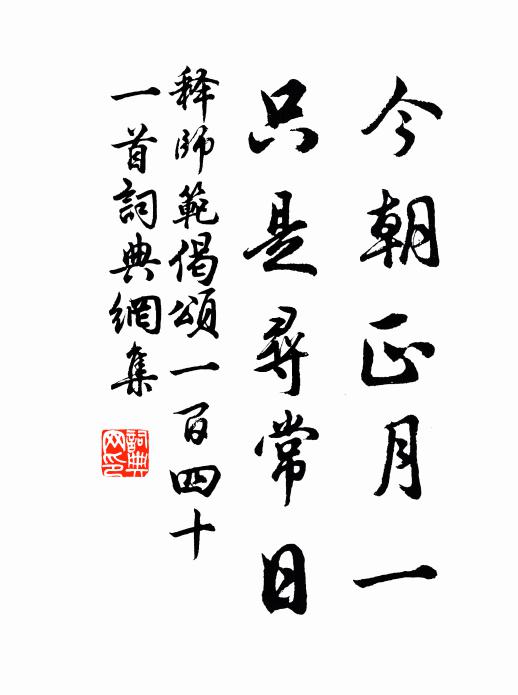 今朝正月一
只是尋常日
释師範偈頌一百四十
一首詞典網集
詞典
网印